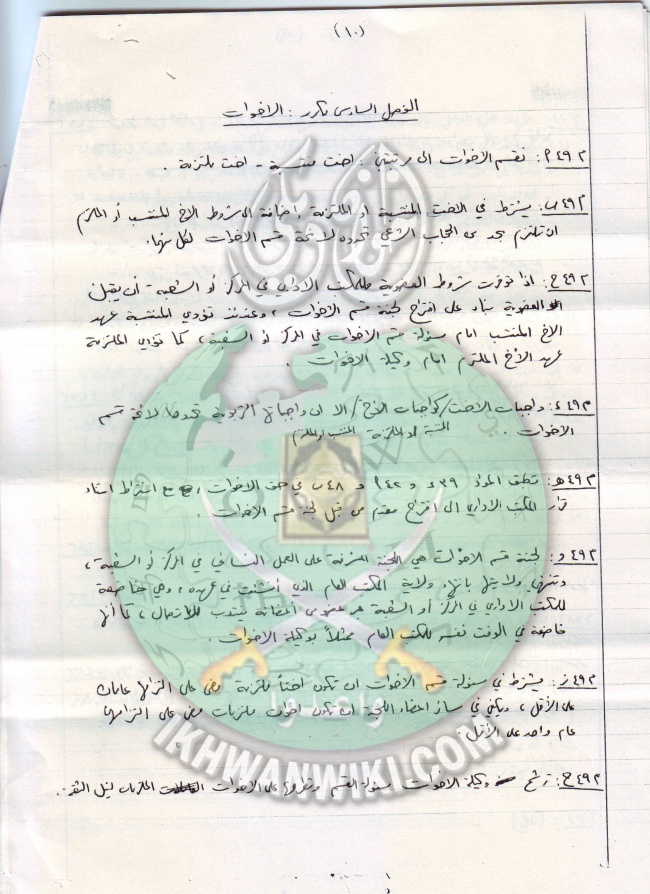 (١٠)
الفصل السادس مكرر : الاخوات
م٤٩أ: تقسم الاخوات الى مرتبتين : اخت منتسبة - اخت ملتزمة .
م٤٩ب: يشترط في الاخت المنتسبة او الملتزمة إضافة الى شروط الاخ المنتسب أو الملتزم
ان تلتزم بحد من الحجاب الشرعي تحدده لائحة قسم الاخوات لكل منهما.
م٤٩ج: اذا توفرت شروط العضوية للمكتب الاداري في المركز أو الشعبة أن يقبل
العضوية بناء على اقتراح لجنة قسم الاخوات ، وعندئذ تؤدي المنتسبة عهد
الاخ المنتسب امام مسؤولة قسم الاخوات في المركز أو الشعبة ، كما تؤدي الملتزمة
عهد الأخ الملتزم امام وكيلة الاخوات .
م٤٩د: واجبات الاخت/كواجبات الاخ/ الا ان واجباتها التربوية تحددها لائحة قسم
الاخوات . المنتسبة او الملتزمة المنتسب او الملتزم
م٤٩هـ: تطبق المواد ٣٩د و ٤٢م و ٤٨ب في حق الاخوات مع اشتراط استناد
قرار المكتب الاداري الى اقتراح مقدم من قبل لجنة قسم الاخوات .
م٤٩و: لجنة قسم الاخوات هي اللجنة المشرفة على العمل النسائي في المركز أو الشعبة ،
وتنتهي ولايتها بانتهاء ولاية المكتب العام الذي أنشئت في عهده ، وهي خاضعة
للمكتب الاداري في المركز أو الشعبة عبر عضو من أعضائه منتدب للاتصال ، كما أنها
خاضعة في الوقت نفسه للمكتب العام ممثلاً بوكيلة الاخوات .
م٤٩ز: يشترط في مسؤولة قسم الاخوات ان تكون اختاً ملتزمة مضى على التزامها عامان
على الأقل ، ويكفي في سائر اعضاء اللجنة ان تكون اخوات ملتزمات مضى على التزامها
عام واحد على الأقل .
م٤٩ح: ترشح وكيلة الاخوات مسؤولة القسم وتطرحها على الاخوات الملتزمات لنيل الثقة .
IKHWANWIKI.COM